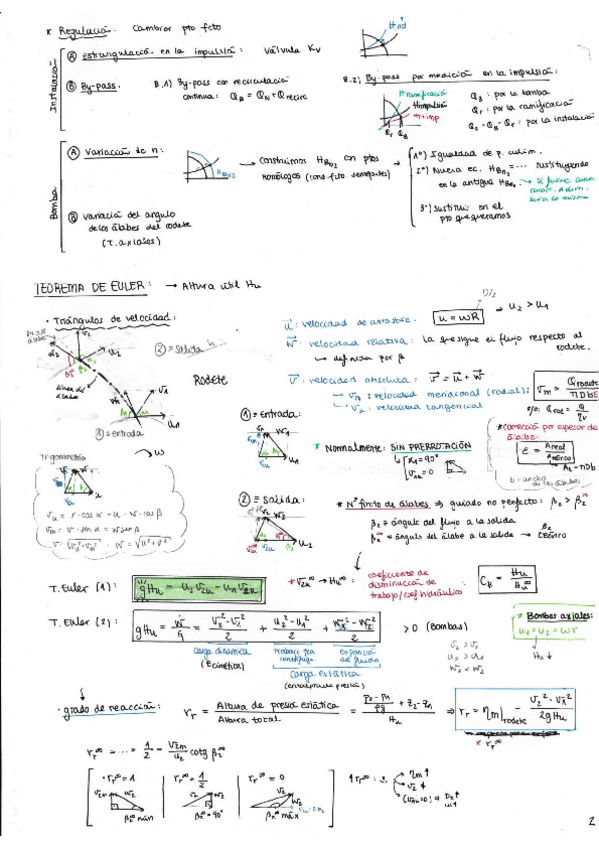 * Regulación: Cambiar pto fcto
Instalación
A Estrangulación en la impulsión: Válvula Kv
B By-pass. B.1) By-pass con recirculación
continua: QB = QN + Qrecirc
B.2) By-pass por medición en la impulsión:
H ramificación
H impulsión
Qr QB
QB : por la bomba
Qr : por la ramificación
: por la instalación
Bomba
A Variación de n:
→ construimos HBn2 con ptos
homólogos (cond. fcto. semejante)
1º) Igualdad de p. adim.
2º) Nueva ec. HBn2 = ... sustituyendo
en la antigua HBn1
3º) sustituir en el
pto que queramos
B variación del angulo
de los álabes del rodete
(T. axiales)
TEOREMA DE EULER: → Altura útil Hu
• Triángulos de velocidad:
2 = salida
línea de
álabe
Rodete
1 = entrada
→ w
u⃗ : velocidad de arrastre.
u = wR
D/2
⇒ u2 > u1
w⃗ : velocidad relativa: la que sigue el flujo respecto al
rodete.
↳ definida por β
v⃗ : velocidad absoluta: v⃗ = u⃗ + w⃗
→ vm : velocidad meridional (radial):
→ vu : velocidad tangencial
vm = Qrodete / πDbε
Qrod = Q / ηv
1 = Entrada:
* Normalmente: SIN PRERROTACIÓN
α1 = 90°
v1u = 0
* corrección por espesor de
álabes:
ε = Areal / Ateórico
b = ancho
de los álabes
Trigonometría
vu = v · cos α = u - w · cos β
vm = v · sen α = w sen β
2 = Salida:
* Nº finito de álabes ⇒ guiado no perfecto: β2 > β2∞
β2 = ángulo del flujo a la salida
β2∞ = ángulo del álabe a la salida → teórico
T. Euler (1): gHu = u2 v2u - u1 v1u
* v2u∞ → Hu∞ :
coeficiente de
disminución de
trabajo/coef hidráulico
CH = Hu / Hu∞
T. Euler (2): gHu = Ẇ/G = (v2² - v1²)/2 + (u2² - u1²)/2 + (w1² - w2²)/2 > 0 (Bombas)
carga dinámica
(E cinética)
trabajo fza
centrífuga
expansión
del fluido
carga estática
v2 > v1
u2 > u1
w1 < w2
* Bombas axiales:
u1 = u2 = wr
Hu ↓
• grado de reacción: rr = Altura de presión estática / Altura total = ((p2 - p1)/ρg + z2 - z1) / Hu ⇒ rr = ηm|rodete - (v2² - v1²)/2gHu
* rr∞
rr∞ = ... = 1/2 - v2m/u2 cotg β2∞
• rr∞ = 1
β2∞ mín
rr∞ = 1/2
β2∞ = 90°
rr∞ = 0
β2∞ máx
↑ rr∞ :
ηm ↑
v2 ↓
2